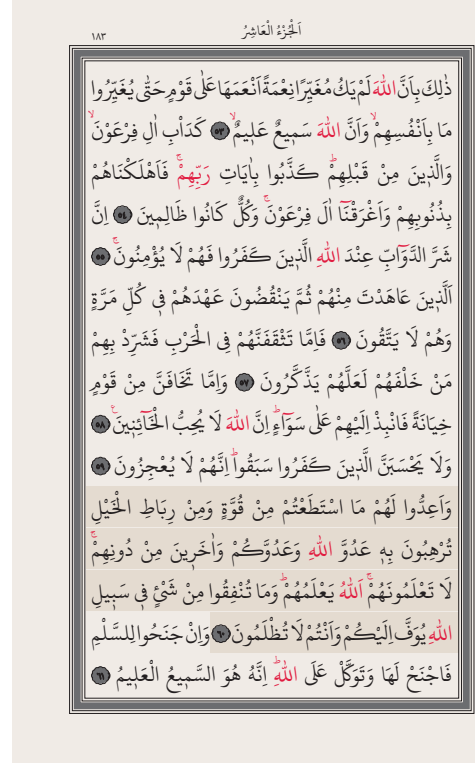 ١٨٣ اَلْجُزْءُ الْعَاشِرُ
ذٰلِكَ بِاَنَّ اللّٰهَ لَمْ يَكُ مُغَيِّرًا نِعْمَةً اَنْعَمَهَا عَلٰى قَوْمٍ حَتّٰى يُغَيِّرُوا
مَا بِاَنْفُسِهِمْۙ وَاَنَّ اللّٰهَ سَم۪يعٌ عَل۪يمٌۙ ﴿٥٣﴾ كَدَاْبِ اٰلِ فِرْعَوْنَۙ
وَالَّذ۪ينَ مِنْ قَبْلِهِمْۜ كَذَّبُوا بِاٰيَاتِ رَبِّهِمْۚ فَاَهْلَكْنَاهُمْ
بِذُنُوبِهِمْ وَاَغْرَقْنَٓا اٰلَ فِرْعَوْنَۚ وَكُلٌّ كَانُوا ظَالِم۪ينَ ﴿٥٤﴾ اِنَّ
شَرَّ الدَّوَٓابِّ عِنْدَ اللّٰهِ الَّذ۪ينَ كَفَرُوا فَهُمْ لَا يُؤْمِنُونَۚ ﴿٥٥﴾
اَلَّذ۪ينَ عَاهَدْتَ مِنْهُمْ ثُمَّ يَنْقُضُونَ عَهْدَهُمْ ف۪ي كُلِّ مَرَّةٍ
وَهُمْ لَا يَتَّقُونَ ﴿٥٦﴾ فَاِمَّا تَثْقَفَنَّهُمْ فِي الْحَرْبِ فَشَرِّدْ بِهِمْ
مَنْ خَلْفَهُمْ لَعَلَّهُمْ يَذَّكَّرُونَ ﴿٥٧﴾ وَاِمَّا تَخَافَنَّ مِنْ قَوْمٍ
خِيَانَةً فَانْبِذْ اِلَيْهِمْ عَلٰى سَوَٓاءٍۜ اِنَّ اللّٰهَ لَا يُحِبُّ الْخَٓائِن۪ينَ۟ ﴿٥٨﴾
وَلَا يَحْسَبَنَّ الَّذ۪ينَ كَفَرُوا سَبَقُواۜ اِنَّهُمْ لَا يُعْجِزُونَ ﴿٥٩﴾
وَاَعِدُّوا لَهُمْ مَا اسْتَطَعْتُمْ مِنْ قُوَّةٍ وَمِنْ رِبَاطِ الْخَيْلِ
تُرْهِبُونَ بِه۪ عَدُوَّ اللّٰهِ وَعَدُوَّكُمْ وَاٰخَر۪ينَ مِنْ دُونِهِمْۚ
لَا تَعْلَمُونَهُمْۚ اَللّٰهُ يَعْلَمُهُمْۜ وَمَا تُنْفِقُوا مِنْ شَيْءٍ ف۪ي سَب۪يلِ
اللّٰهِ يُوَفَّ اِلَيْكُمْ وَاَنْتُمْ لَا تُظْلَمُونَ ﴿٦٠﴾ وَاِنْ جَنَحُوا لِلسَّلْمِ
فَاجْنَحْ لَهَا وَتَوَكَّلْ عَلَى اللّٰهِۜ اِنَّهُ هُوَ السَّم۪يعُ الْعَل۪يمُ ﴿٦١﴾